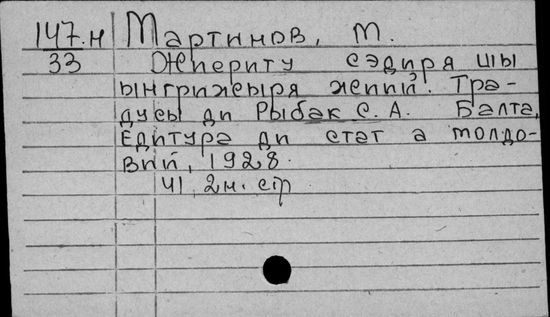 147.н Мартинов, М.
33 Жпериту сэдиря шы
ынгрижыря жепий. Трэ-
дусы ди Рыбак С. А. Балта,
Едитура ди стат а молдо-
вий, 1928.
41, 2н. стр